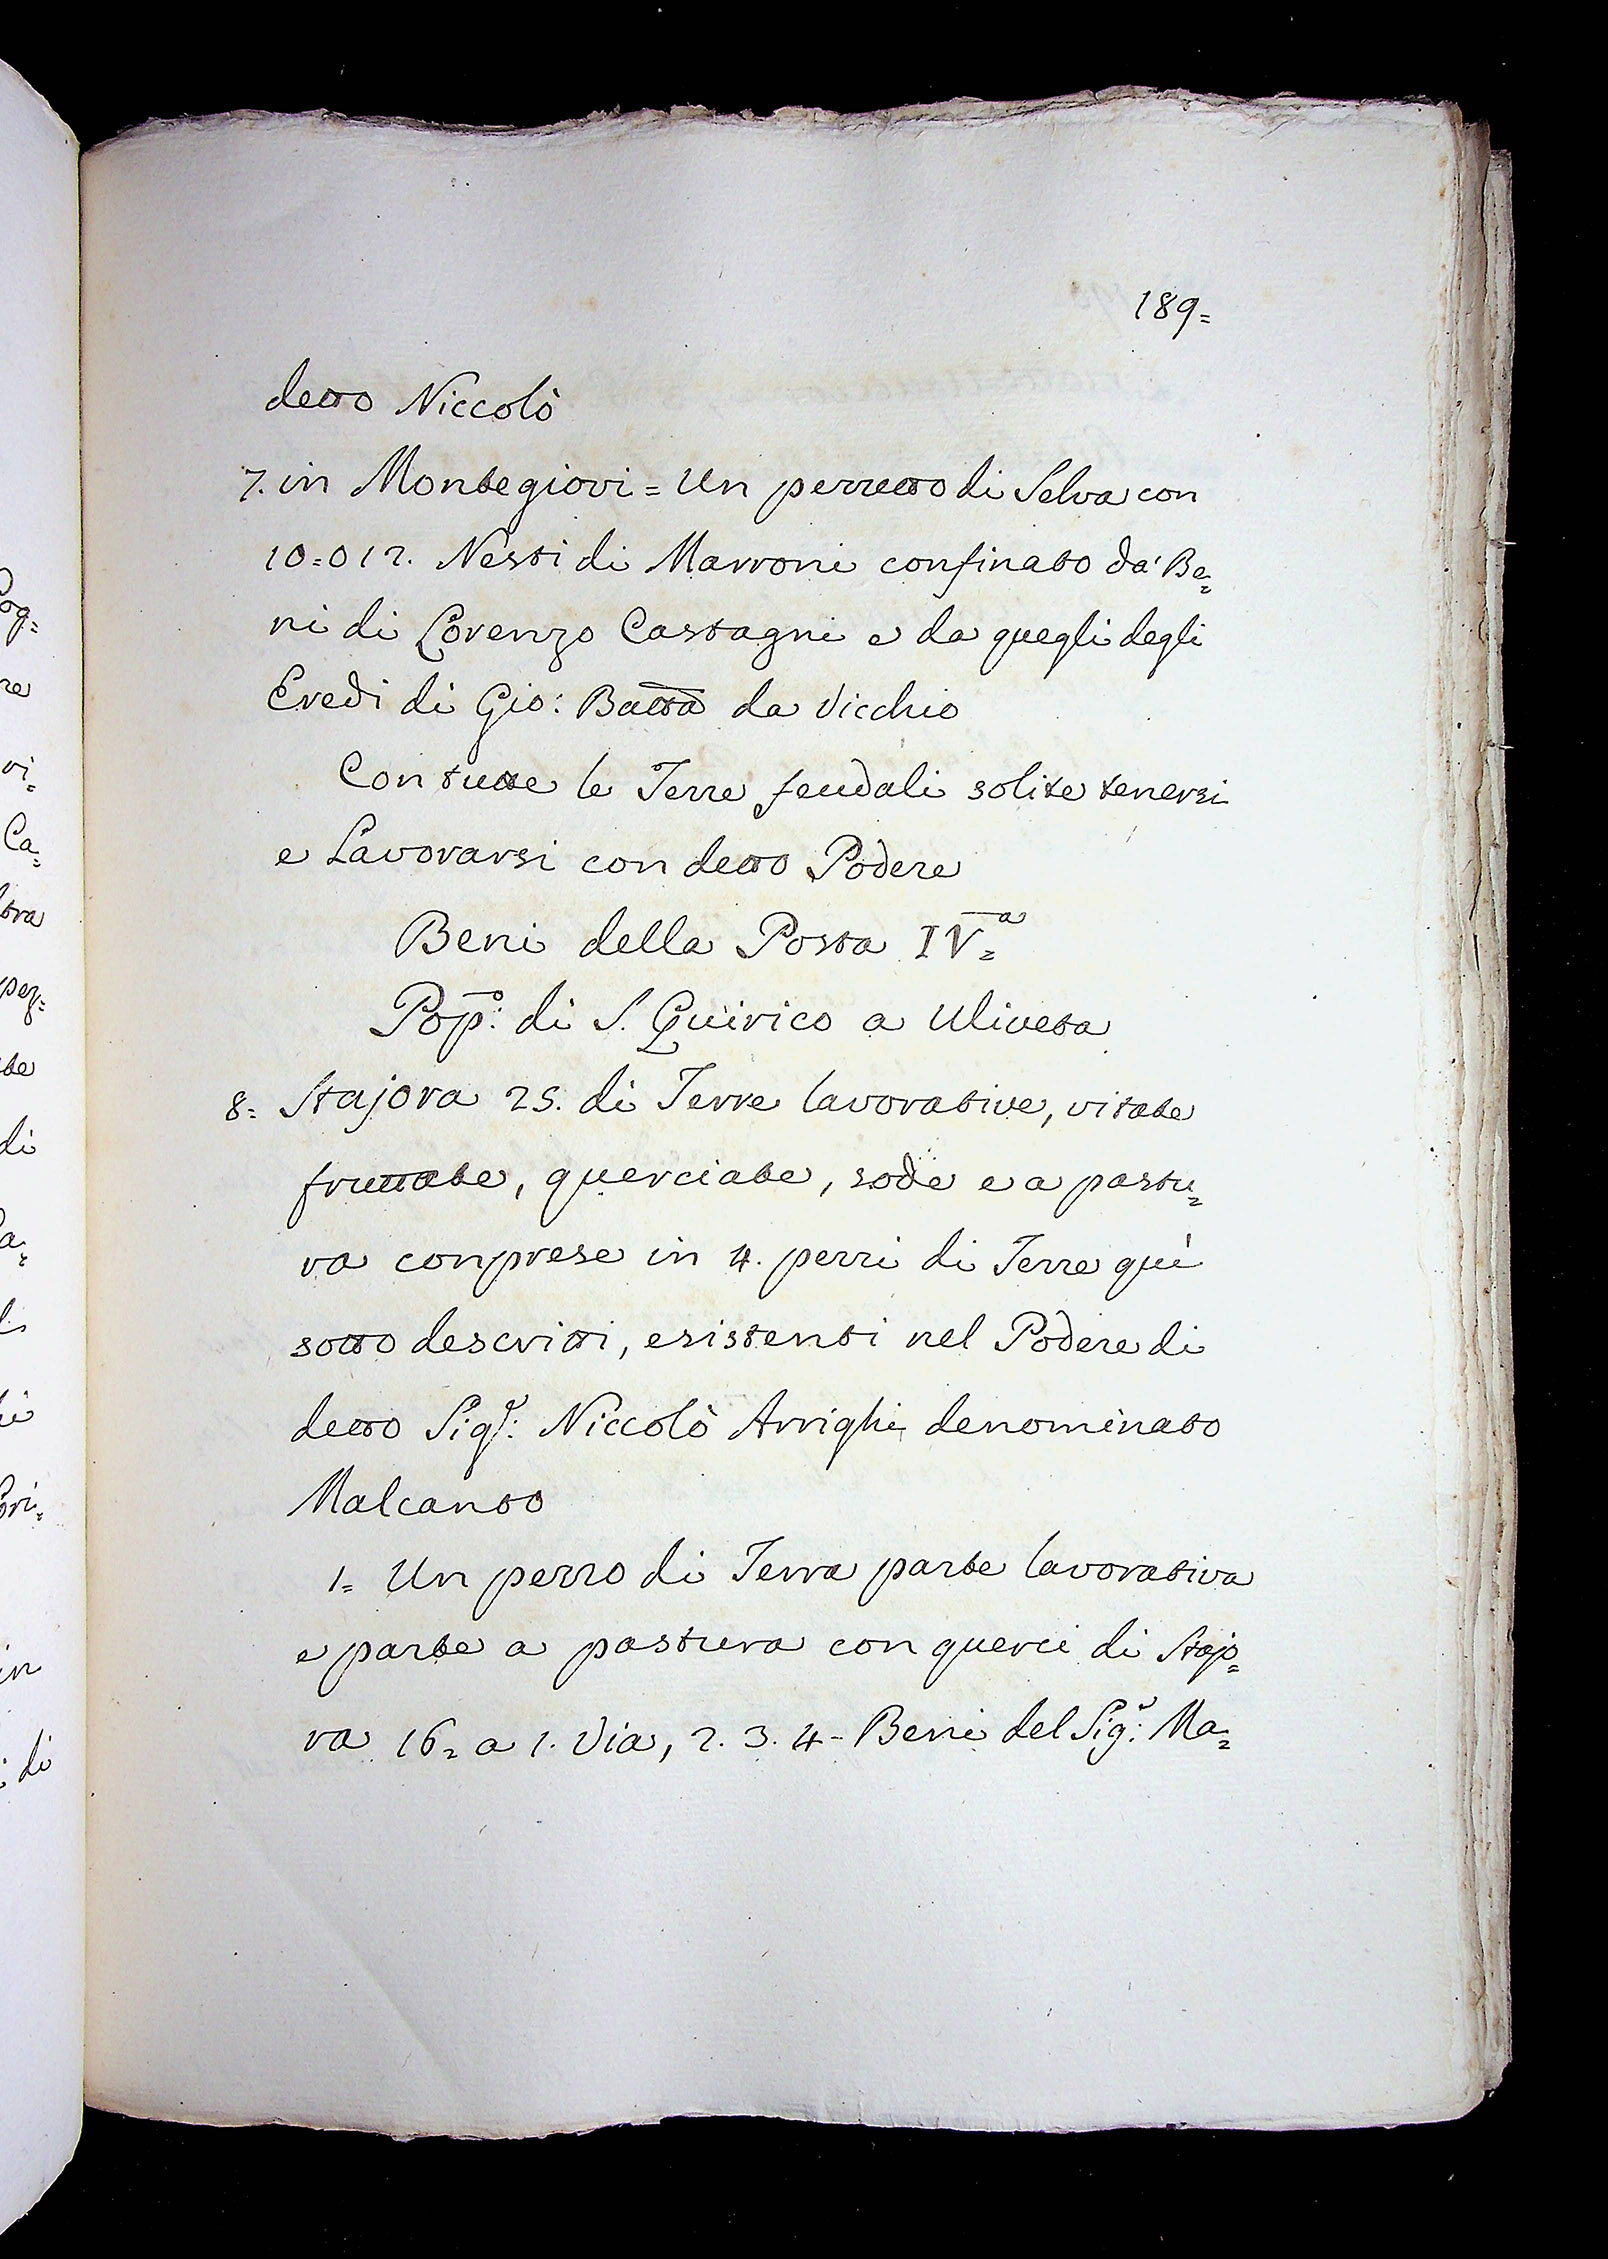 189=
detto Niccolò
7. in Montegiovi = Un pezzetto di Selva con
10=o 12. Nesti di Marroni confinato da' Be=
ni di Lorenzo Castagni e da quegli degli
Eredi di Gio: Batta da Vicchio
Con tutte le Terre feudali solite tenersi
e Lavorarsi con detto Podere
Beni della Posta IV.a
Pop.o: di S. Quirico a Uliveta
8= Stajora 25. di Terre lavorative, vitate
fruttate, querciate, sode e a pastu=
ra conprese in 4. pezzi di Terre quì
sotto descritti, esistenti nel Podere di
detto Sig.r: Niccolò Arrighi denominato
Malcanto
1= Un pezzo di Terra parte lavorativa
e parte a pastura con querci di Stajo=
ra 16= a 1. Via, 2. 3. 4- Beni del Sig.r: Ma=